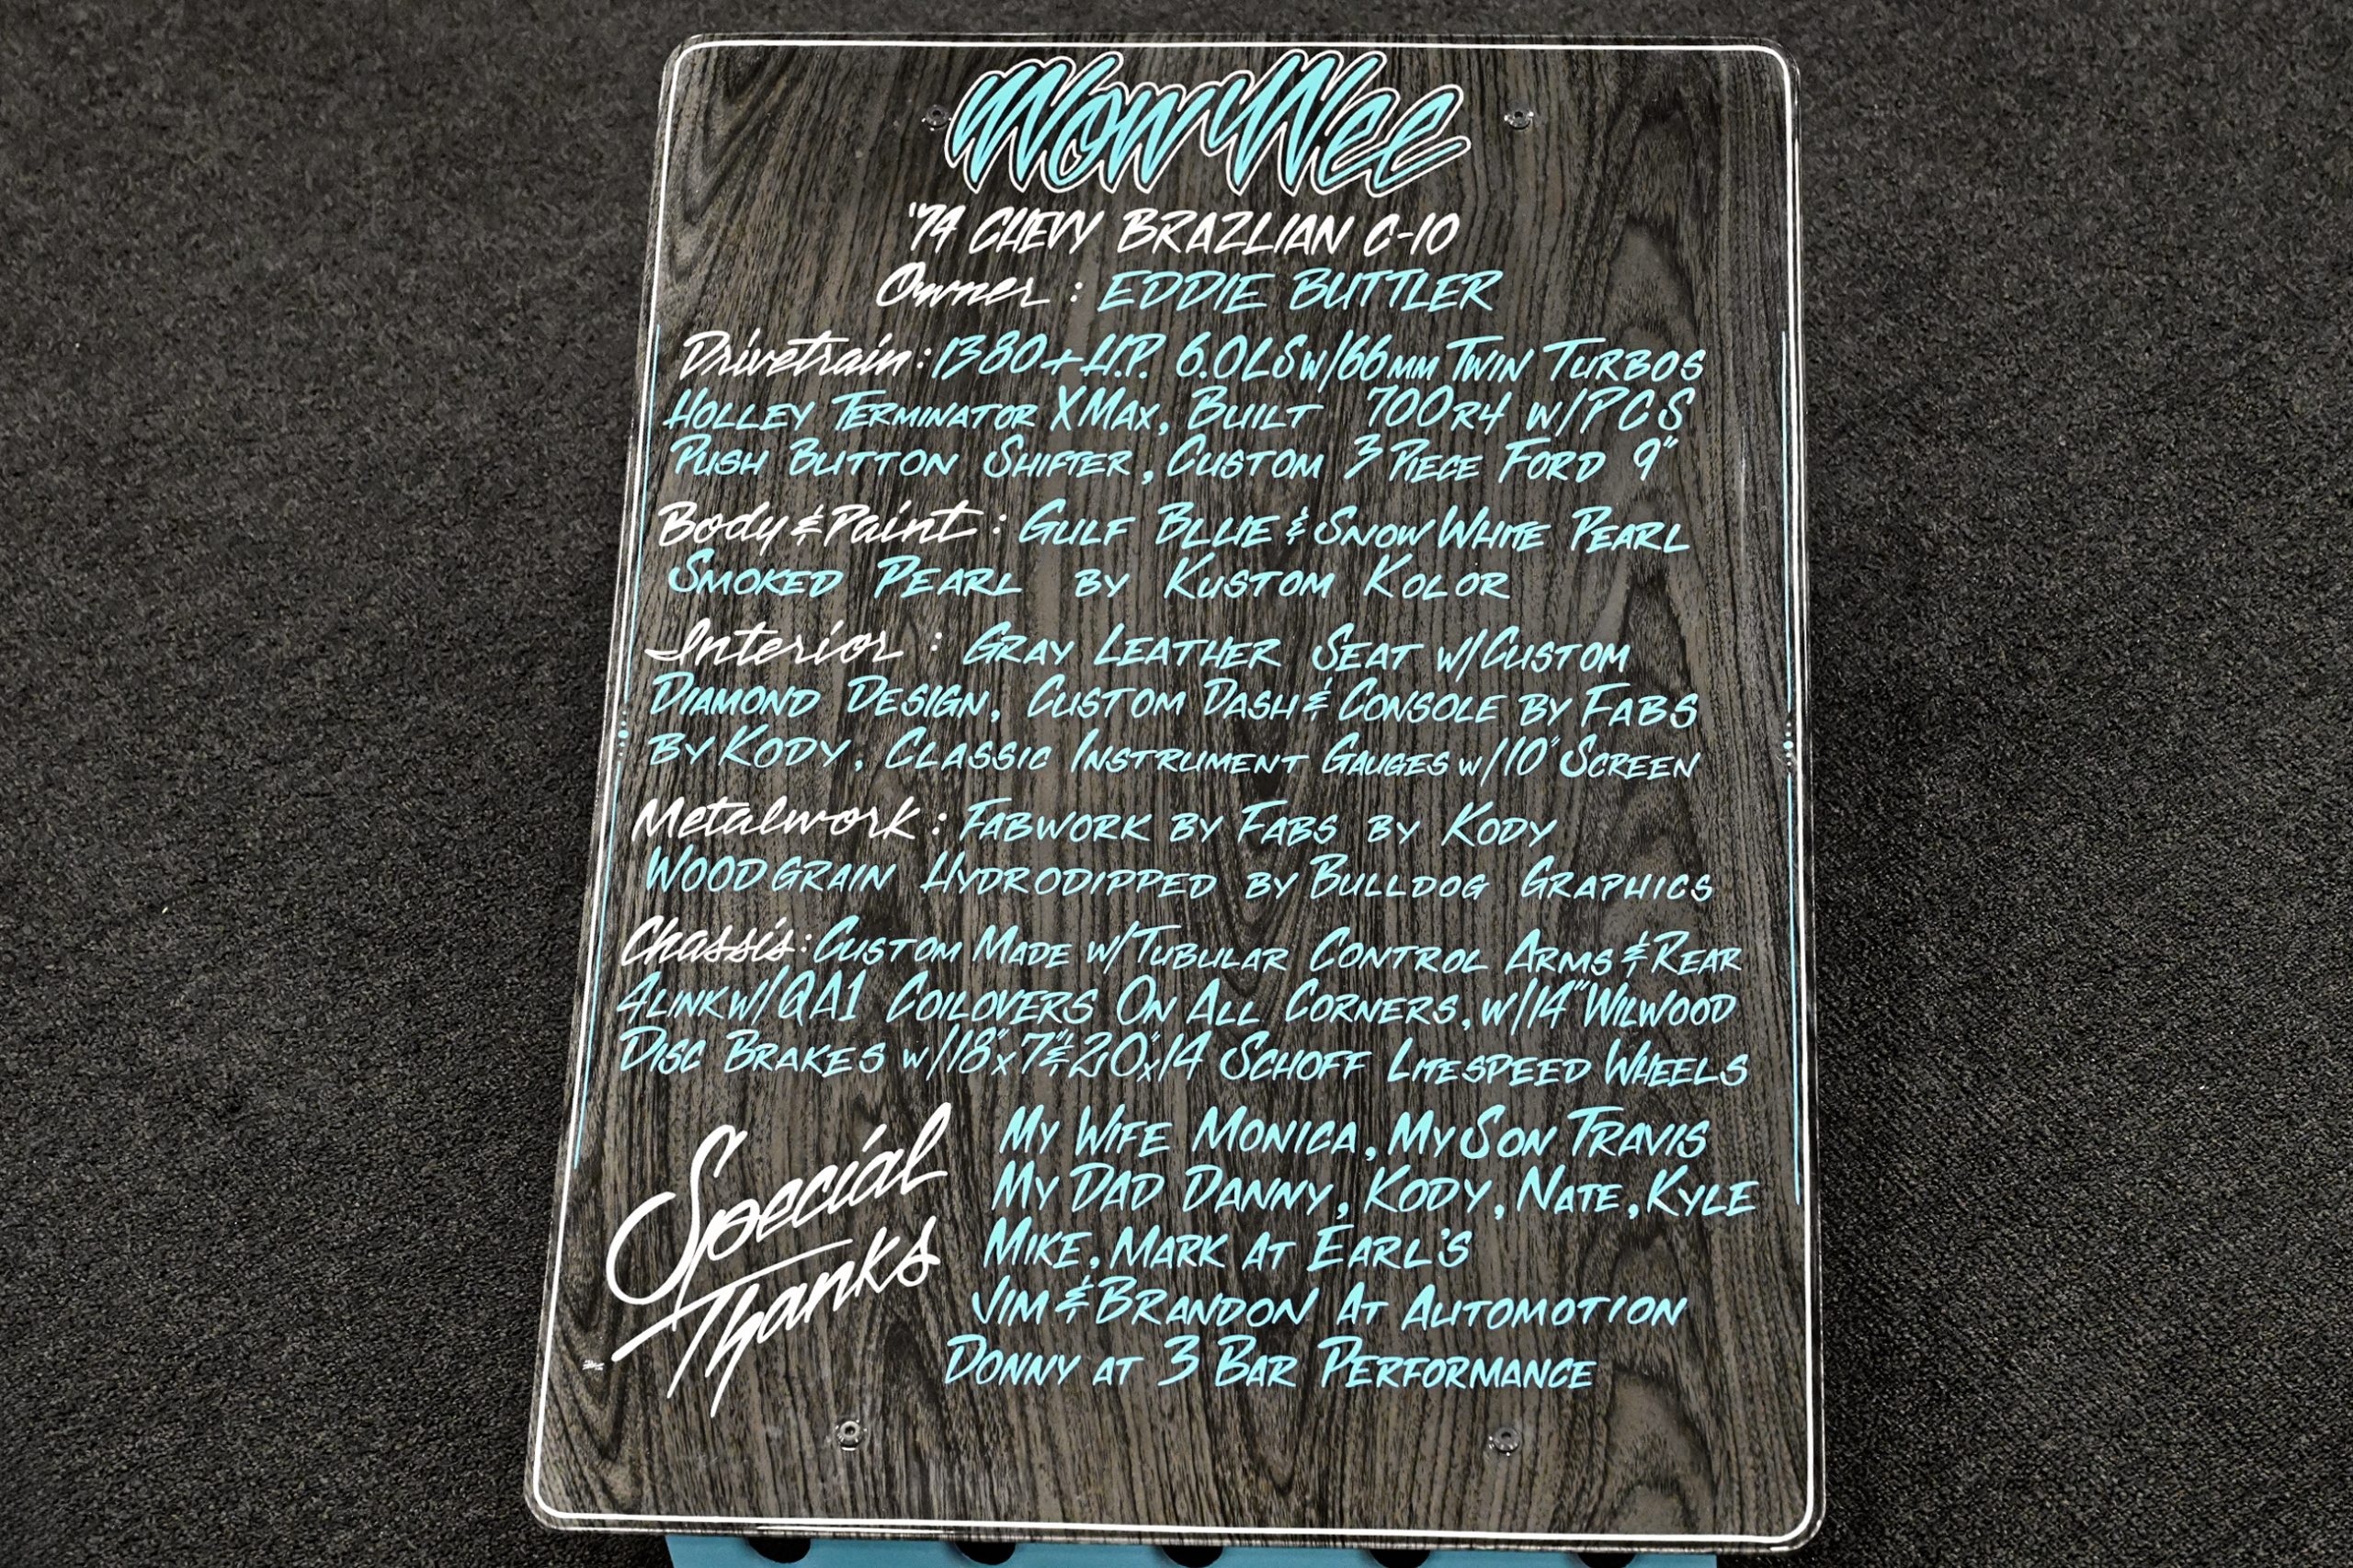 Wow Wee
'74 CHEVY BRAZLIAN C-10
Owner: EDDIE BUTTLER
Drivetrain: 1380+ H.P. 6.0 LS w/66mm TWIN TURBOS
HOLLEY TERMINATOR X MAX, BUILT 700R4 W/PCS
PUSH BUTTON SHIFTER, CUSTOM 3 PIECE FORD 9"
Body & Paint: GULF BLUE & SNOW WHITE PEARL
SMOKED PEARL BY KUSTOM KOLOR
Interior: GRAY LEATHER SEAT W/CUSTOM
DIAMOND DESIGN, CUSTOM DASH & CONSOLE BY FABS
BY KODY, CLASSIC INSTRUMENT GAUGES W/10" SCREEN
Metalwork: FABWORK BY FABS BY KODY
WOODGRAIN HYDRODIPPED BY BULLDOG GRAPHICS
Chassis: CUSTOM MADE W/TUBULAR CONTROL ARMS & REAR
4LINK W/QA1 COILOVERS ON ALL CORNERS, W/14" WILWOOD
DISC BRAKES W/18"x7" & 20"x14 SCHOFF LITESPEED WHEELS
Special
Thanks
MY WIFE MONICA, MY SON TRAVIS
MY DAD DANNY, KODY, NATE, KYLE
MIKE, MARK AT EARL'S
JIM & BRANDON AT AUTOMOTION
DONNY AT 3 BAR PERFORMANCE